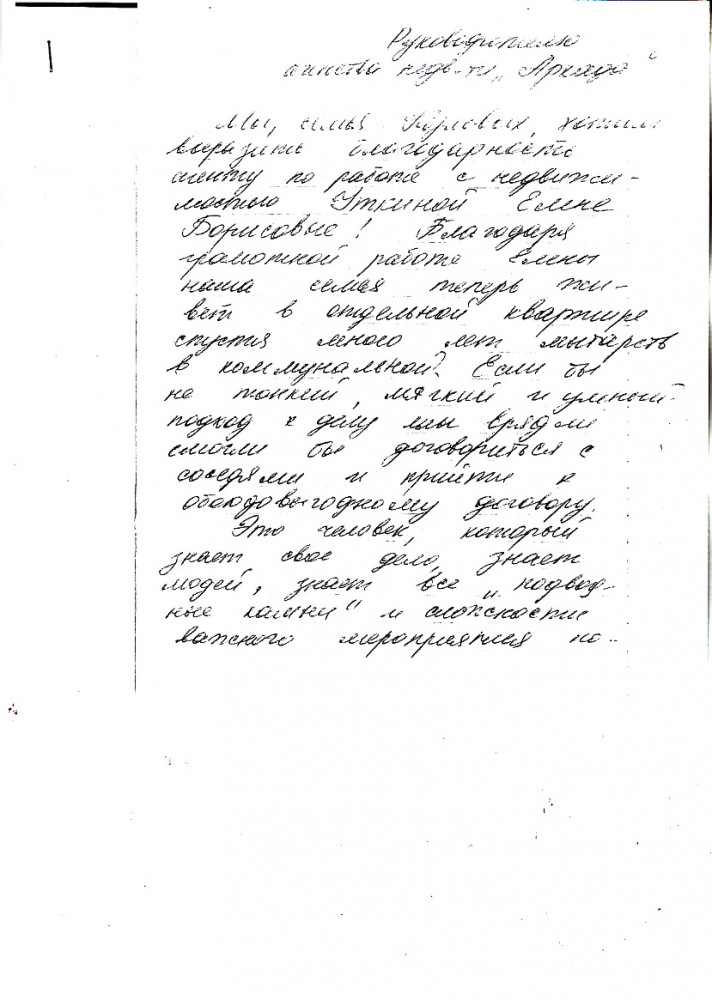 Руководителю
агенства недв-ти „Аркада"
Мы, семья хотим
выразить благодарность
агенту по работе с недвижи-
мостью Уткиной Елене
Борисовне! Благодаря
грамотной работе Елены
наша семья теперь жи-
вет в отдельной квартире
спустя много лет мытарств
в коммунальной. Если бы
не тонкий, мягкий и умный
подход к делу мы врядли
смогли бы договориться с
соседями и прийти к
обоюдовыгодному договору.
Это человек, который
знает свое дело, знает
людей, знает все „подвод-
ные камни" и сложности
важного мероприятия по-